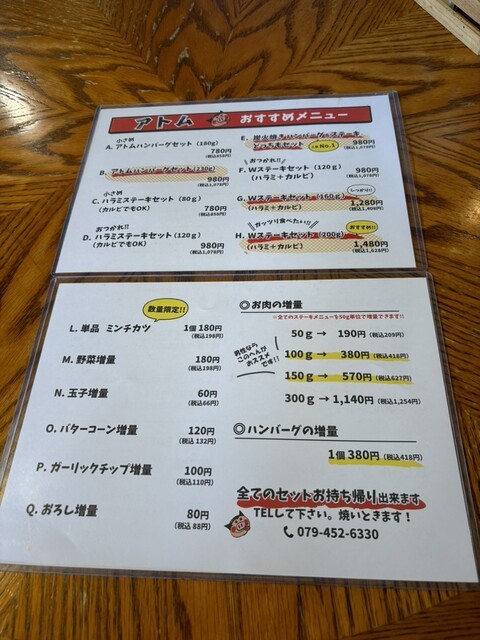 アトム おすすめメニュー
小さめ
A. アトムハンバーグセット (180g)
780円
(税込858円)
B. アトムハンバーグセット (230g)
980円
(税込1,078円)
小さめ
C. ハラミステーキセット (80g)
(カルビでもOK)
780円
(税込858円)
おつかれ!!
D. ハラミステーキセット (120g)
(カルビでもOK)
980円
(税込1,078円)
E. 炭火焼きハンバーグ&ステーキ
どっちもセット
人気No.1
980円
(税込1,078円)
おつかれ!!
F. Wステーキセット (120g)
(ハラミ+カルビ)
980円
(税込1,078円)
しっかり!!
G. Wステーキセット (160g)
(ハラミ+カルビ)
1,280円
(税込1,408円)
ガッツリ食べたい!!
おすすめ!!
H. Wステーキセット (200g)
(ハラミ+カルビ)
1,480円
(税込1,628円)
数量限定!!
L. 単品 ミンチカツ 1個 180円
(税込198円)
M. 野菜増量 180円
(税込198円)
N. 玉子増量 60円
(税込66円)
O. バターコーン増量 120円
(税込 132円)
P. ガーリックチップ増量 100円
(税込110円)
Q. おろし増量 80円
(税込 88円)
◎お肉の増量
※全てのステーキメニューを50g単位で増量できます!!
50g → 190円 (税込209円)
男性なら
このへんが
おススメ
です!!
100g → 380円 (税込418円)
150g → 570円 (税込627円)
300g → 1,140円 (税込1,254円)
◎ハンバーグの増量
1個 380円 (税込418円)
全てのセットお持ち帰り出来ます
TELして下さい。焼いときます!
079-452-6330